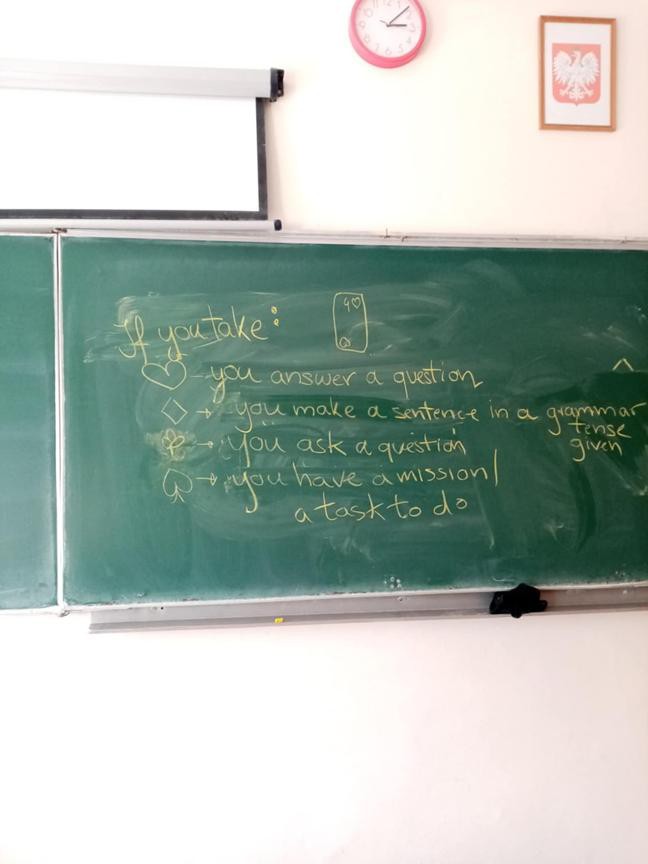 If you take:
4♡
♡ - you answer a question
◇ → you make a sentence in a grammar
tense
given
♧ → you ask a question
♤ → you have a mission/
a task to do